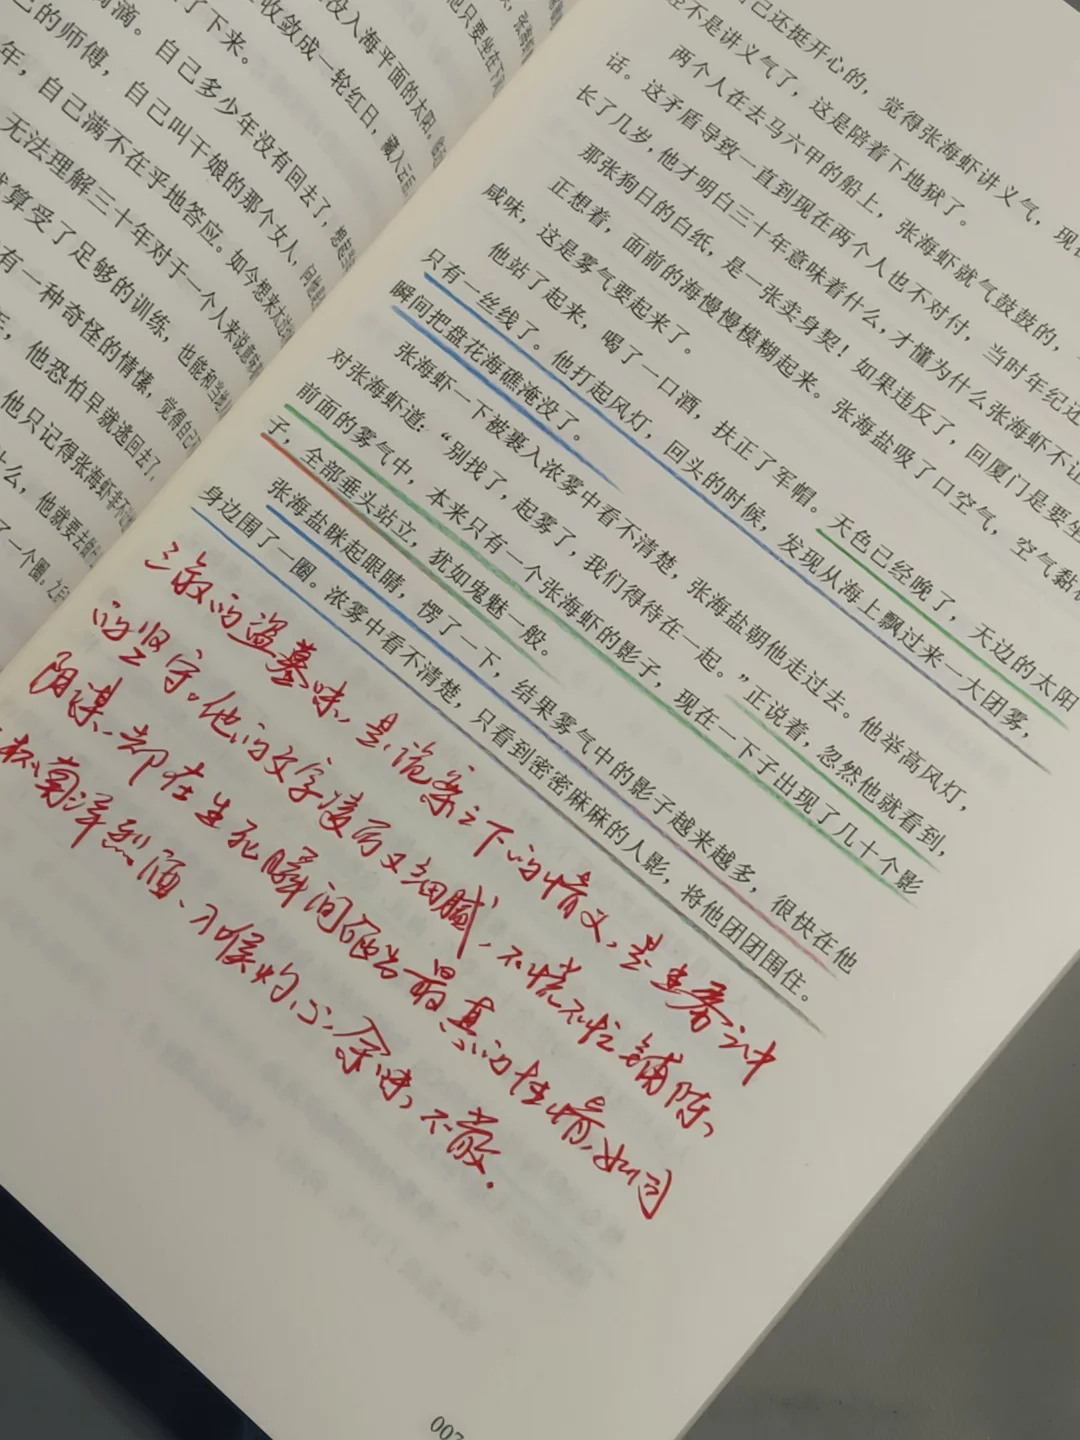 滴滴。自己多少年没有回去了，
己的师傅，自己叫干娘的那个女人，
年，自己满不在乎地答应。如今想来
无法理解三十年对于一个人来说意味
算受了足够的训练，也能和当
有一种奇怪的情愫，觉得自己
，他恐怕早就逃回去了，
他只记得张海虾
什么，他就要去
了一个圈。之后
没入海平面的太阳，
收敛成一轮红日，藏入云
了下来。
他只要坐在下
己还挺开心的，觉得张海虾讲义气，现在
不是讲义气了，这是陪着下地狱了。
两个人在去马六甲的船上，张海虾就气鼓鼓的，
话。这矛盾导致一直到现在两个人也不对付，当时年纪还
长了几岁，他才明白三十年意味着什么，才懂为什么张海虾不让
那张狗日的白纸，是一张卖身契！如果违反了，回厦门是要坐
正想着，面前的海慢慢模糊起来。张海盐吸了口空气，空气黏
咸味，这是雾气要起来了。
他站了起来，喝了一口酒，扶正了军帽。天色已经晚了，天边的太阳
只有一丝线了。他打起风灯，回头的时候，发现从海上飘过来一大团雾，
瞬间把盘花海礁淹没了。
张海虾一下被裹入浓雾中看不清楚，张海盐朝他走过去。他举高风灯，
对张海虾道：“别找了，起雾了，我们得待在一起。”正说着，忽然他就看到，
前面的雾气中，本来只有一个张海虾的影子，现在一下子出现了几十个影
子，全部垂头站立，犹如鬼魅一般。
张海盐眯起眼睛，愣了一下，结果雾气中的影子越来越多，很快在他
身边围了一圈。浓雾中看不清楚，只看到密密麻麻的人影，将他团团围住。
三叔的盗墓味，是诡案之下的情义，是
的坚守。他的文字凌厉又细腻，不慌不忙铺陈
阴谋，却在生死瞬间砸出最真的性情，如同
南洋烈酒，刀喉灼心，余味不散。
007